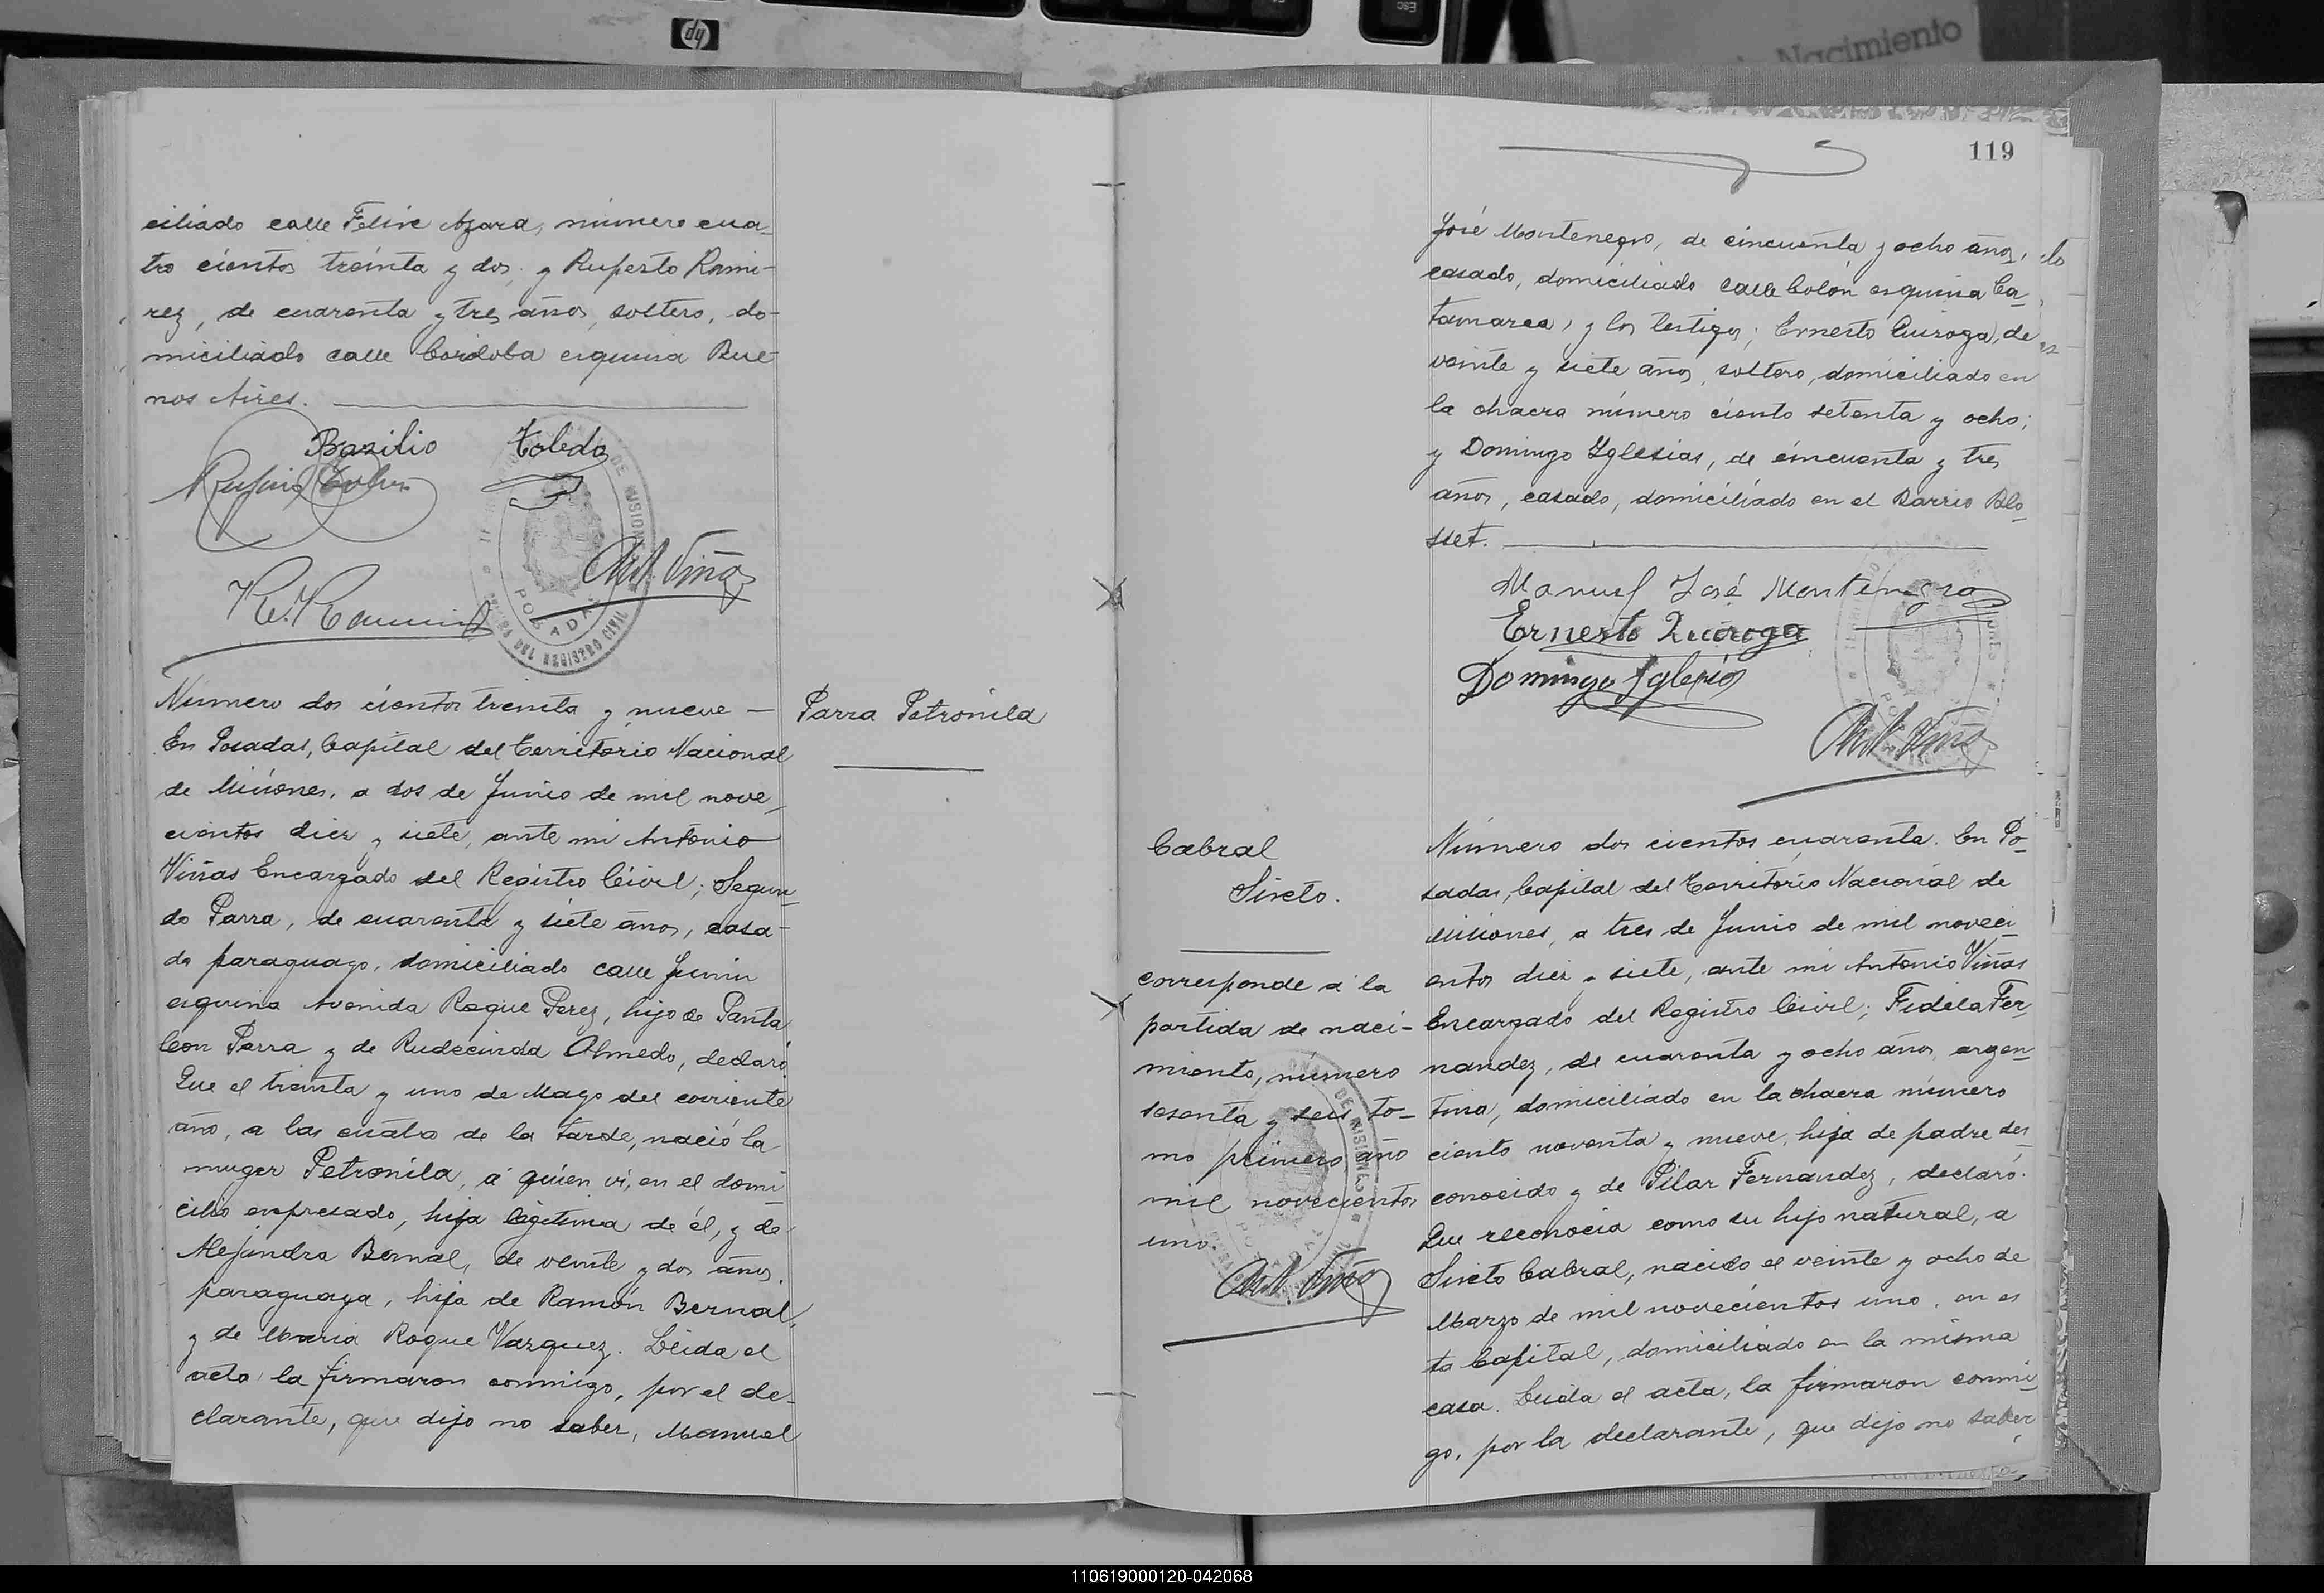 hp
ESC
Nacimiento
ciliado calle Felix Azara, número cua-
tro cientos treinta y dos; y Ruperto Rami-
rez, de cuarenta y tres años, soltero, do-
miciliado calle Cordoba esquina Bue-
nos Aires.
Bazilio Toledo
Ant. Viñas
Número dos cientos treinta y nueve —
En Posadas, Capital del Territorio Nacional
de Misiones, a dos de Junio de mil nove-
cientos diez y siete, ante mi Antonio
Viñas Encargado del Registro Civil; Segun-
do Parra, de cuarenta y siete años, casa-
do paraguayo, domiciliado calle Junin
esquina Avenida Roque Perez, hijo de Panta
leon Parra y de Rudecinda Olmedo, declaró:
Que el treinta y uno de Mayo del corriente
año, a las cuatro de la tarde, nació la
muger Petronila, á quien vi, en el domi
cilio expresado, hija legitima de él, y de
Alejandra Bernal, de veinte y dos años,
paraguaya, hija de Ramón Bernal,
y de Maria Roque Vazquez. Leida el
acta, la firmaron conmigo, por el de-
clarante, que dijo no saber, Manuel
Parra Petronila
119
José Montenegro, de cincuenta y ocho años,
casado, domiciliado calle Colón esquina Ca-
tamarca, y los testigos; Ernesto Quiroga, de
veinte y siete años, soltero, domiciliado en
la chacra número ciento setenta y ocho;
y Domingo Yglesias, de cincuenta y tres
años, casado, domiciliado en el Barrio Blo-
sset.
Manuel José Montenegro
Ernesto Quiroga
Domingo Yglesias
Ant. Viñas
Cabral
Sixto.
corresponde a la
partida de naci-
miento, número
sesenta y seis to-
mo primero año
mil novecientos
uno.
Ant. Viñas
Número dos cientos cuarenta. En Po-
sadas, Capital del Territorio Nacional de
Misiones, a tres de Junio de mil noveci-
entos diez y siete, ante mi Antonio Viñas
Encargado del Registro Civil; Fidela Fer-
nandez, de cuarenta y ocho años, argen-
tina, domiciliado en la chacra número
ciento noventa y nueve, hija de padre des-
conocido y de Pilar Fernandez, declaró:
Que reconocia como su hijo natural, a
Sixto Cabral, nacido el veinte y ocho de
Marzo de mil novecientos uno, en es
ta Capital, domiciliado en la misma
casa. Leida el acta, la firmaron conmi-
go, por la declarante, que dijo no saber,
110619000120-042068